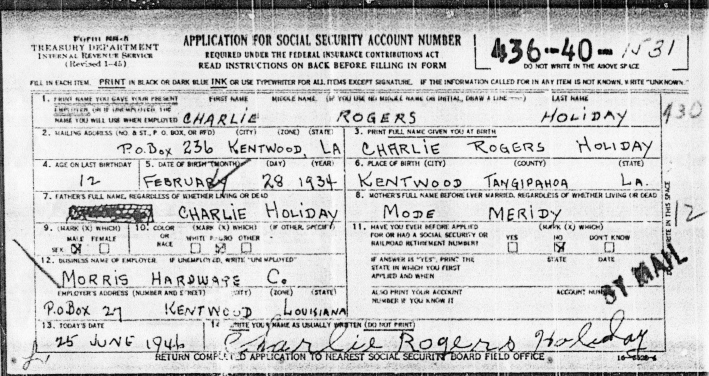 FORM SS-5
TREASURY DEPARTMENT
INTERNAL REVENUE SERVICE
(Revised 1-45)
APPLICATION FOR SOCIAL SECURITY ACCOUNT NUMBER
REQUIRED UNDER THE FEDERAL INSURANCE CONTRIBUTIONS ACT
READ INSTRUCTIONS ON BACK BEFORE FILLING IN FORM
436-40-1531
DO NOT WRITE IN THE ABOVE SPACE
FILL IN EACH ITEM. PRINT IN BLACK OR DARK BLUE INK OR USE TYPEWRITER FOR ALL ITEMS EXCEPT SIGNATURE. IF THE INFORMATION CALLED FOR IN ANY ITEM IS NOT KNOWN, WRITE "UNKNOWN."
1. PRINT NAME YOU GAVE YOUR PRESENT FIRST NAME MIDDLE NAME. (IF YOU USE NO MIDDLE NAME OR INITIAL, DRAW A LINE) LAST NAME
EMPLOYER, OR IF UNEMPLOYED, THE
NAME YOU WILL USE WHEN EMPLOYED CHARLIE ROGERS HOLIDAY
430
2. MAILING ADDRESS (NO. & ST., P. O. BOX, OR RFD) (CITY) (ZONE) (STATE) 3. PRINT FULL NAME GIVEN YOU AT BIRTH
P.O.Box 236 KENTWOOD, LA CHARLIE ROGERS HOLIDAY
4. AGE ON LAST BIRTHDAY 5. DATE OF BIRTH (MONTH) (DAY) (YEAR) 6. PLACE OF BIRTH (CITY) (COUNTY) (STATE)
12 FEBRUARY 28 1934 KENTWOOD TANGIPAHOA LA.
7. FATHER'S FULL NAME, REGARDLESS OF WHETHER LIVING OR DEAD 8. MOTHER'S FULL NAME BEFORE EVER MARRIED, REGARDLESS OF WHETHER LIVING OR DEAD
CHARLIE HOLIDAY MODE MERIDY
12
WRITE IN THIS SPACE
9. (MARK (X) WHICH) 10. COLOR (MARK (X) WHICH) (IF OTHER, SPECIFY) 11. HAVE YOU EVER BEFORE APPLIED (MARK (X) WHICH)
MALE FEMALE OR WHITE NEGRO OTHER FOR OR HAD A SOCIAL SECURITY OR YES NO DON'T KNOW
SEX X RACE X RAILROAD RETIREMENT NUMBER? X
12. BUSINESS NAME OF EMPLOYER. IF UNEMPLOYED, WRITE "UNEMPLOYED" IF ANSWER IS "YES", PRINT THE STATE DATE
MORRIS HARDWARE Co. STATE IN WHICH YOU FIRST
APPLIED AND WHEN
BY MAIL
EMPLOYER'S ADDRESS (NUMBER AND STREET) (CITY) (ZONE) (STATE) ALSO PRINT YOUR ACCOUNT ACCOUNT NUMBER
P.O.Box 27 KENTWOOD LOUISIANA NUMBER IF YOU KNOW IT
13. TODAY'S DATE 14. WRITE YOUR NAME AS USUALLY WRITTEN (DO NOT PRINT)
25 JUNE 1946 Charlie Rogers Holiday
RETURN COMPLETED APPLICATION TO NEAREST SOCIAL SECURITY BOARD FIELD OFFICE